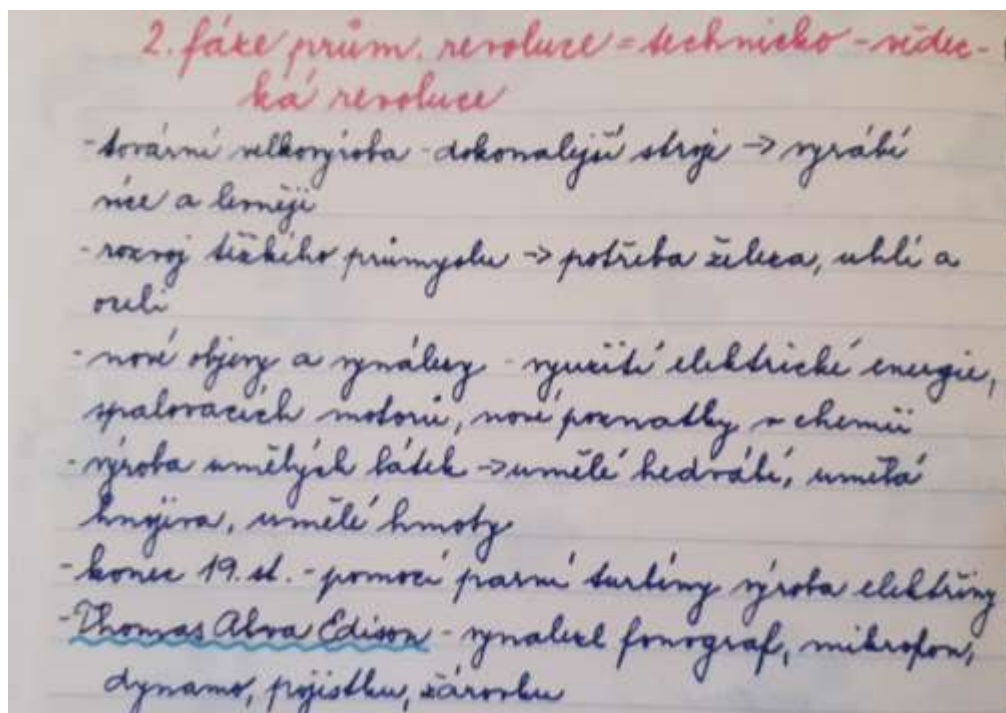 2. fáze prům. revoluce = technicko-vědec-
ká revoluce
- tovární velkovýroba - dokonalejší stroje → vyrábí
více a levněji
- rozvoj těžkého průmyslu → potřeba železa, uhlí a
oceli
- nové objevy a vynálezy - využití elektrické energie,
spalovacích motorů, nové poznatky v chemii
- výroba umělých látek → umělé hedvábí, umělá
hnojiva, umělé hmoty
- konec 19. st. - pomocí parní turbíny výroba elektřiny
- Thomas Alva Edison - vynalezl fonograf, mikrofon,
dynamo, pojistku, žárovku